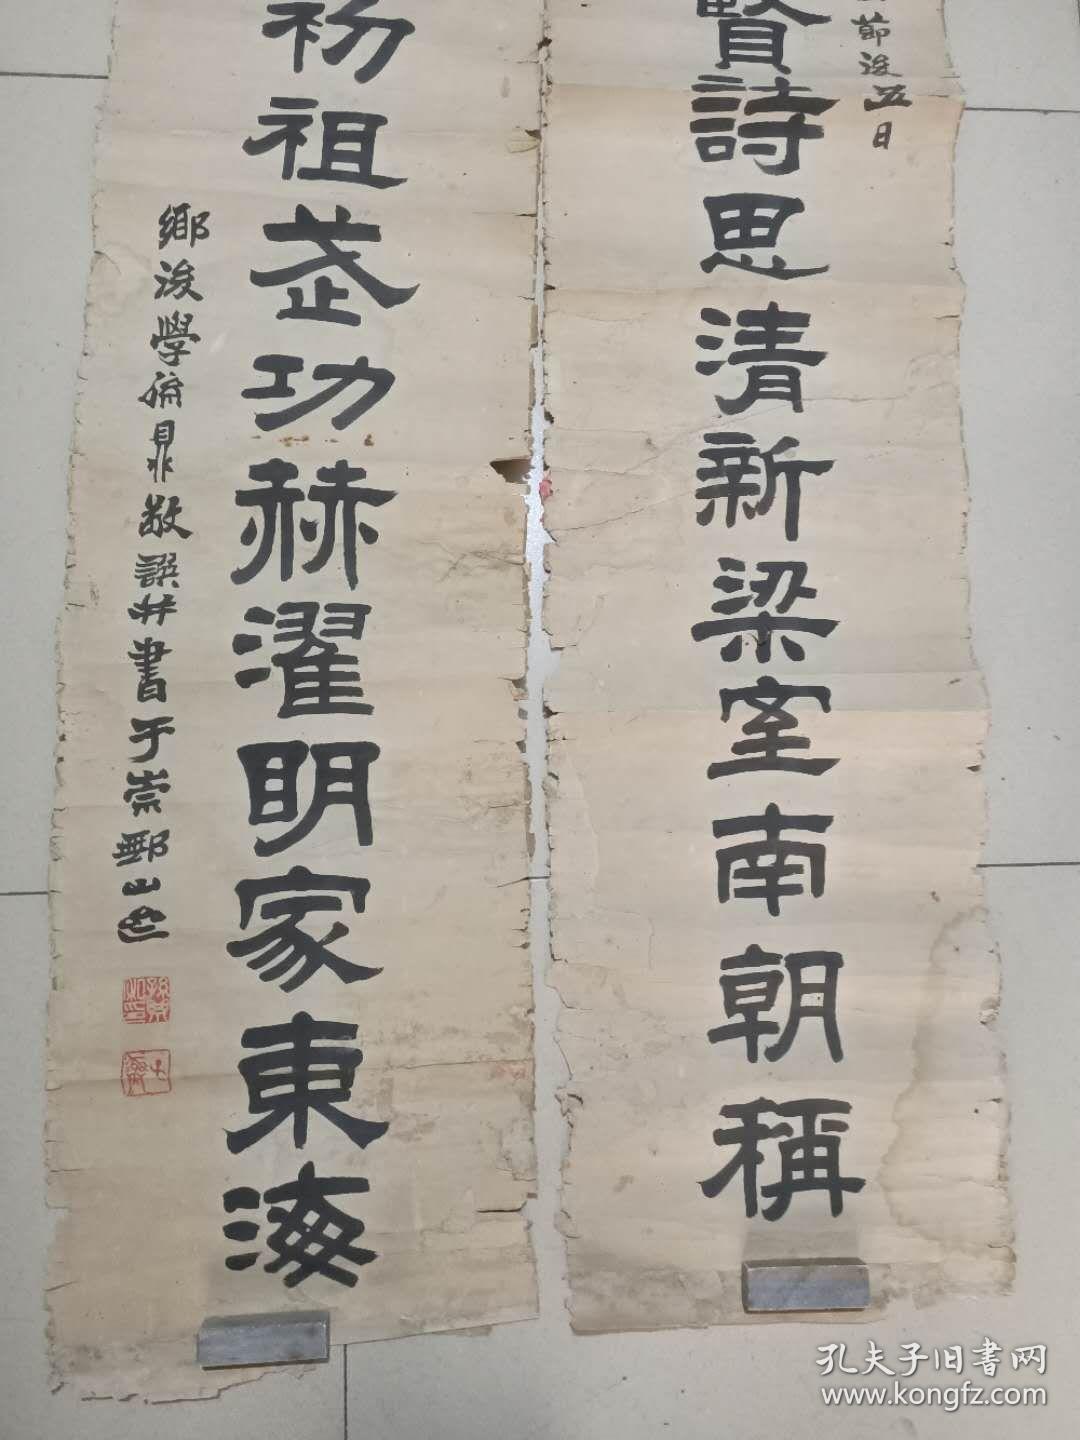 節後五日
賢詩思清新梁室南朝稱
初祖武功赫濯明家東海
鄉後學孫鼎敬譔並書于崇鄄山邑
孔夫子旧書网
www.kongfz.com